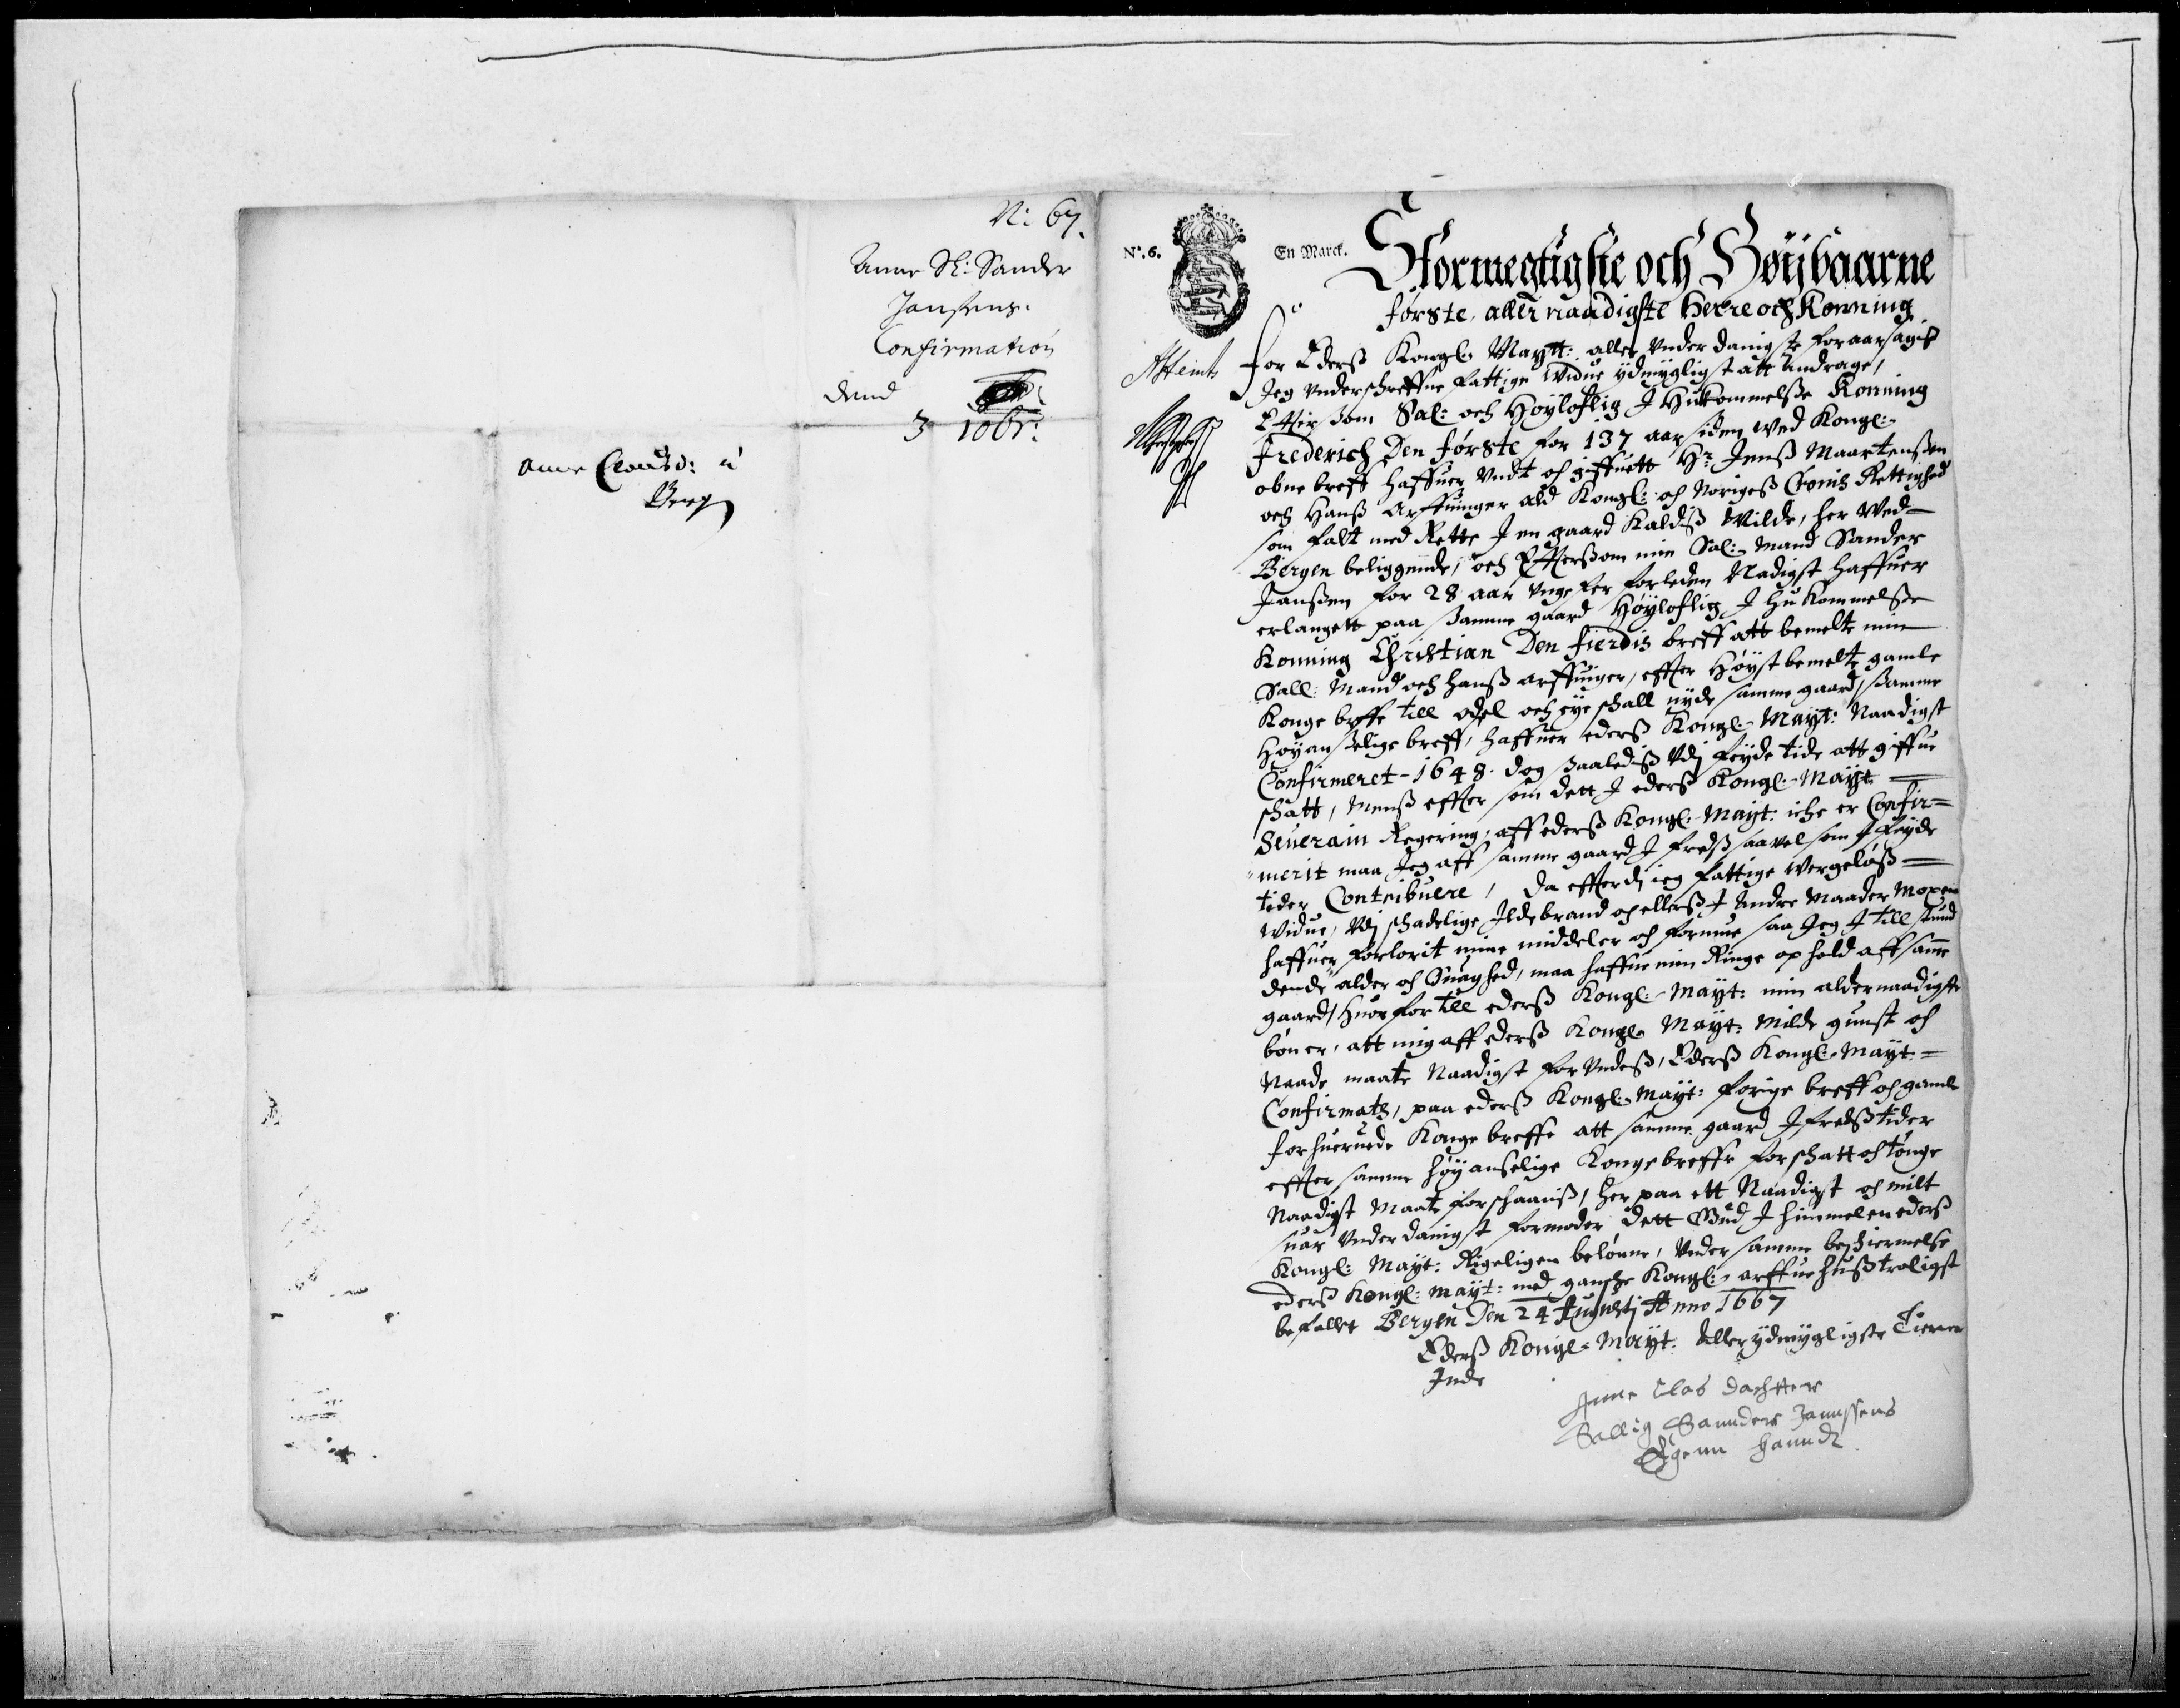 N: 67.
Anne Sl: Sander
Jansens.
Confirmation
dend
3 10br:
Anne Clausd: i
Berg
No. 6.
En Marck.
Stormegtigste och Høÿbaarne
første, aller naadigste Herre och Konning
for Eders Kongl: Maytt: aller Underdanigste foraarsagis
Jeg underschreffne fattige Widue ÿdmygligst att andrage,
Efftersom Sal: och Høyloflig J Hukommelsse Konning
Frederich Den første for 137 aar siden wed Kongl:
obne breff haffuer undt och giffuett Hr: Jenss Maartenssen
och Hanss Arffuinger ald Kongl: och Norigess Cronis Rettighed
som falt med Rette J en gaard kaldiss Wilde, her wed
Bergen beliggende, och Effterssom min Sal: Mand Sander
Janssen for 28 aar ungefer forleden Nadigst haffuer
erlangett paa samme gaard Høyloflig J hukommelsse
Konning Christian Den fierdis breff att bemelte min
Sall: Mand och hanss arffuinger, effter Høystbemelte gamle
Konge breffe till odel och eye schall nyde samme gaard, samme
Høyanselige breff, haffuer eders Kongl: Mayt: Naadigst
Confirmeret 1648. dog saalediss udj feyde tide att giffue
schatt, menss effter som dett J eders Kongl: Mayt
Seuerain Regering, aff eders Kongl: Mayt: iche er Confir=
merit maa Jeg aff samme gaard J freds saauel som J feyde
tider Contribuere, da effterdj ieg fattige wergeløss
Widue, udj schadelige Jldebrand och ellerss J andre Maader
haffuer forlorit mine middeler och formue saa Jeg J till stund
dende alder och Suaghed, maa haffue min Ringe ophold aff samme
gaard, Huorfor till eders Kongl: Mayt: min aldernaadigste
bøn er, att mig aff eders Kongl: Mayt: Milde gunst och
Naade maate Naadigst forundess, Eders Kongl: Mayt:
Confirmats, paa eders Kongl: Mayt: forige breff och gamle
forhueruede Konge breffe att samme gaard J fredsstider
effter samme høyanselige Kongebreffe for schatt och tønge
Naadigst Maate forschaanis, her paa ett Naadigst och milt
suar Underdanigst formoder dett Gud J himmelen eders
Kongl: Mayt: Rigeligen beløNne, under samme beschiermelse
eders Kongl: Mayt: med gansche Kongl: arffuehuss troligst
befallet Bergen Den 24 Augustj Anno 1667
Eders Kongl: Mayt: Aller ydmygligste Tienner
Inde
Anne Clas dachtter
Sallig Saunders Jannssens
Egenn Haandt